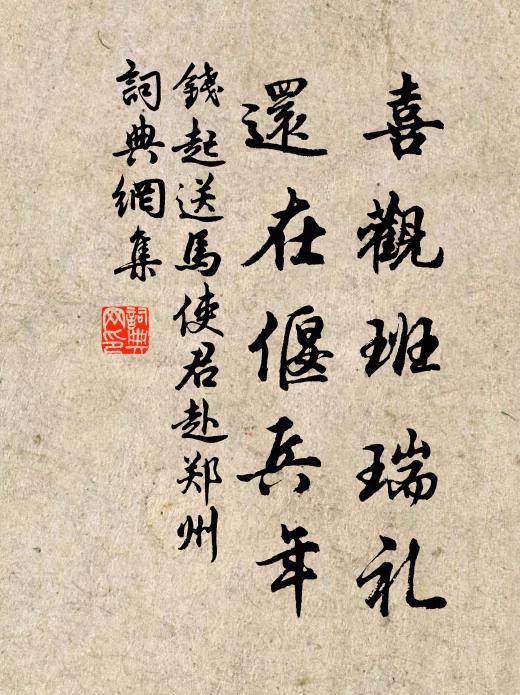 喜觀班瑞礼
還在偃兵年
錢起送馬使君赴郑州
詞典網集
詞典网印